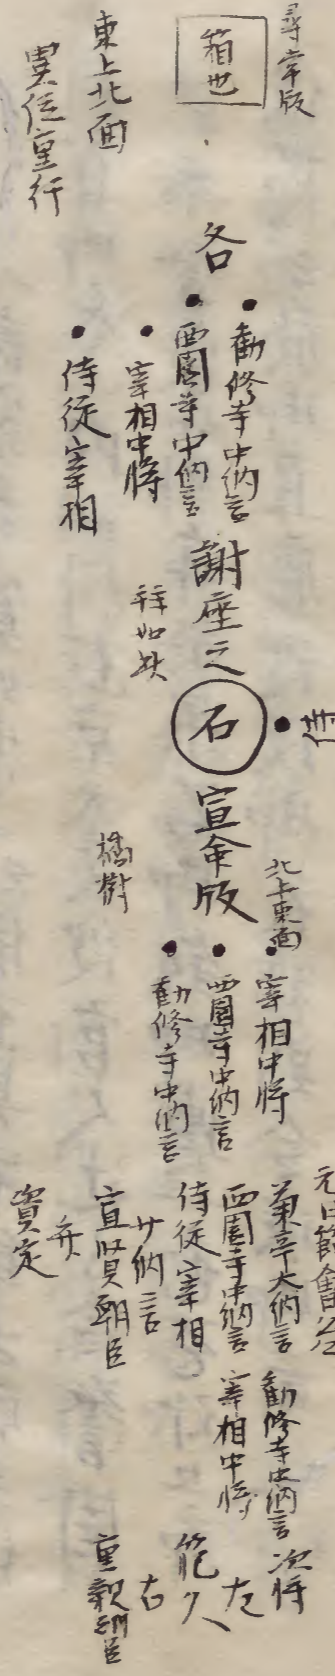 尋常版
箱也
東上北面
異位重行
各
勧修寺中納言
西園寺中納言
宰相中将
侍従宰相
謝座之
拝如此
石
宣命版
橘樹
北上東面
宰相中将
西園寺中納言
勧修寺中納言
元日節會
菊亭大納言 勧修寺中納言 次将
西園寺中納言 宰相中将 左
侍従宰相 範久
少納言 右
宣賢朝臣 重親朝臣
弁
資定